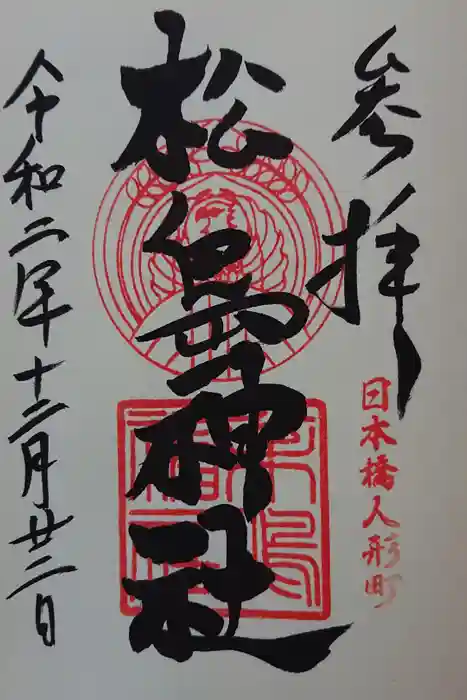 参拝
日本橋人形町
松島神社
令和二年十二月廿二日